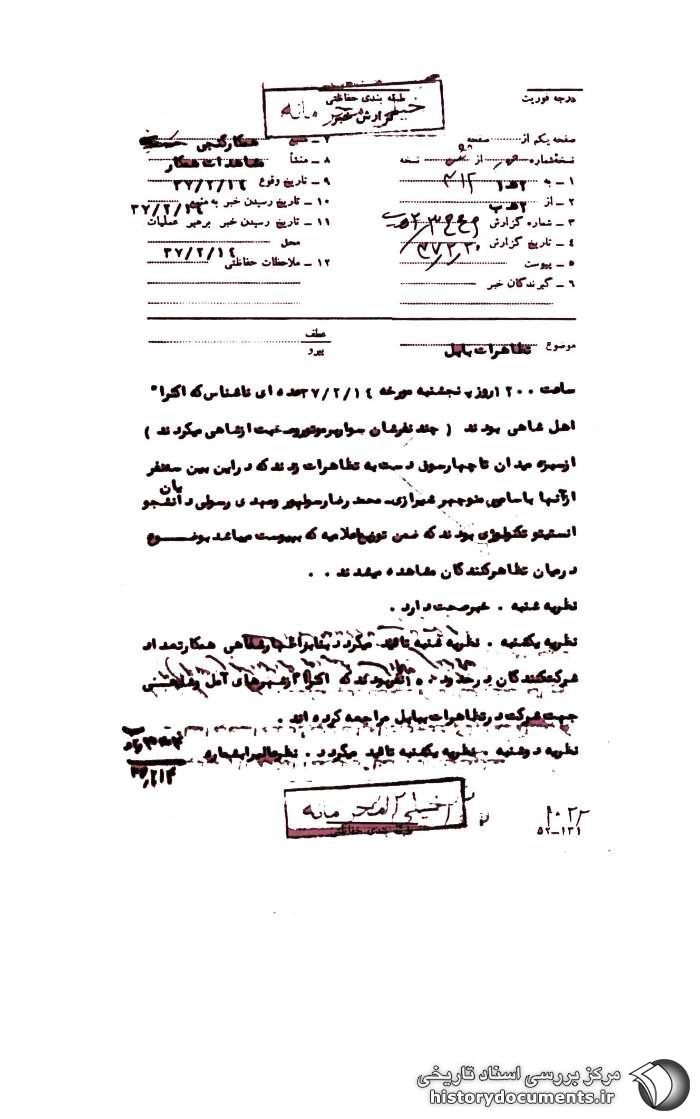 درجه فوریت
طبقه بندی حفاظتی
خیلی محرمانه
گزارش خبر
صفحه یکم از صفحه
نسخه شماره از نسخه
۱ ـ به ۳۱۲
۲ ـ از ۲ هـ ب
۳ ـ شماره گزارش
۴ ـ تاریخ گزارش
۵ ـ پیوست
۶ ـ گیرندگان خبر
۷ ـ منبع همکار گنجی
۸ ـ منشأ مشاهدات همکار
۹ ـ تاریخ وقوع ۳۷/۲/۱۴
۱۰ ـ تاریخ رسیدن خبر به منبع ۳۷/۲/۱۴
۱۱ ـ تاریخ رسیدن خبر برهبر عملیات
محل ۳۷/۲/۱۴
۱۲ ـ ملاحظات حفاظتی
موضوع تظاهرات بابل
عطف
پیرو
ساعت ۱۲۰۰ روز پنجشنبه مورخه ۳۷/۲/۱۴ عده ای ناشناس که اکثرا"
اهل شاهی بودند ( چند نفرشان سوار بر موتور و صحبت از شاهی میکردند )
از سبزه میدان تا چهارسوق دست به تظاهرات زدند که در این بین سه نفر
از آنها باسامی منوچهر شیرازی، محمد رضا رسولپور و مهدی رسولی دانشجویان
انستیتو تکنولوژی بودند که ضمن توزیع اعلامیه که بپیوست میباشد بوضوح
در میان تظاهرکنندگان مشاهده میشدند . .
نظریه شنبه . خبر صحت دارد .
نظریه یکشنبه . نظریه شنبه تائید میگردد بنابر اظهار شفاهی همکار تعداد
شرکتکنندگان در حدود نفر بودند که اکثرا از شهرهای آمل و شاهی
جهت شرکت در تظاهرات ببابل مراجعه کرده اند .
نظریه دوشنبه . نظریه یکشنبه تائید میگردد .
خیلی محرمانه
طبقه بندی حفاظتی
۵۲-۱۳۱
مرکز بررسی اسناد تاریخی
historydocuments.ir